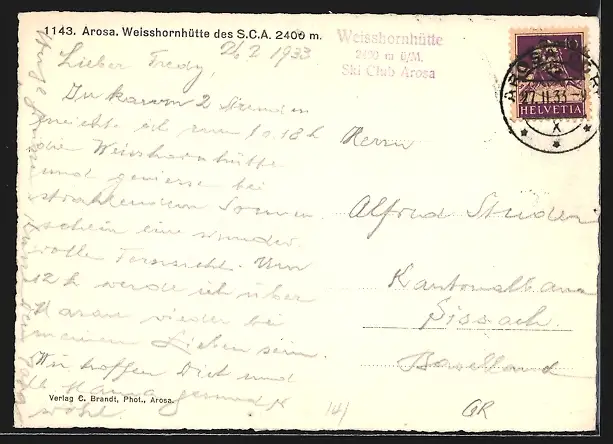 1143. Arosa. Weisshornhütte des S.C.A. 2400 m.
26 2 1933
Weisshornhütte
2400 m ü/M.
Ski Club Arosa
AROSA
27.II.33
HELVETIA
X
Lieber Fredy,
In kaum 2 Stunden
reichte ich zum
die Weisshornhütte
und geniesse bei
strahlendem Sonnen
schein eine wunder
volle Fernsicht. Um
12 h werde ich über
wieder bei
meinen Lieben sein.
Wir hoffen Dich und
Mama gesund &
wohl.
Herrn
Alfred Studer
Kantonalbank
Sissach.
Baselland
Verlag C. Brandt, Phot., Arosa.
GR